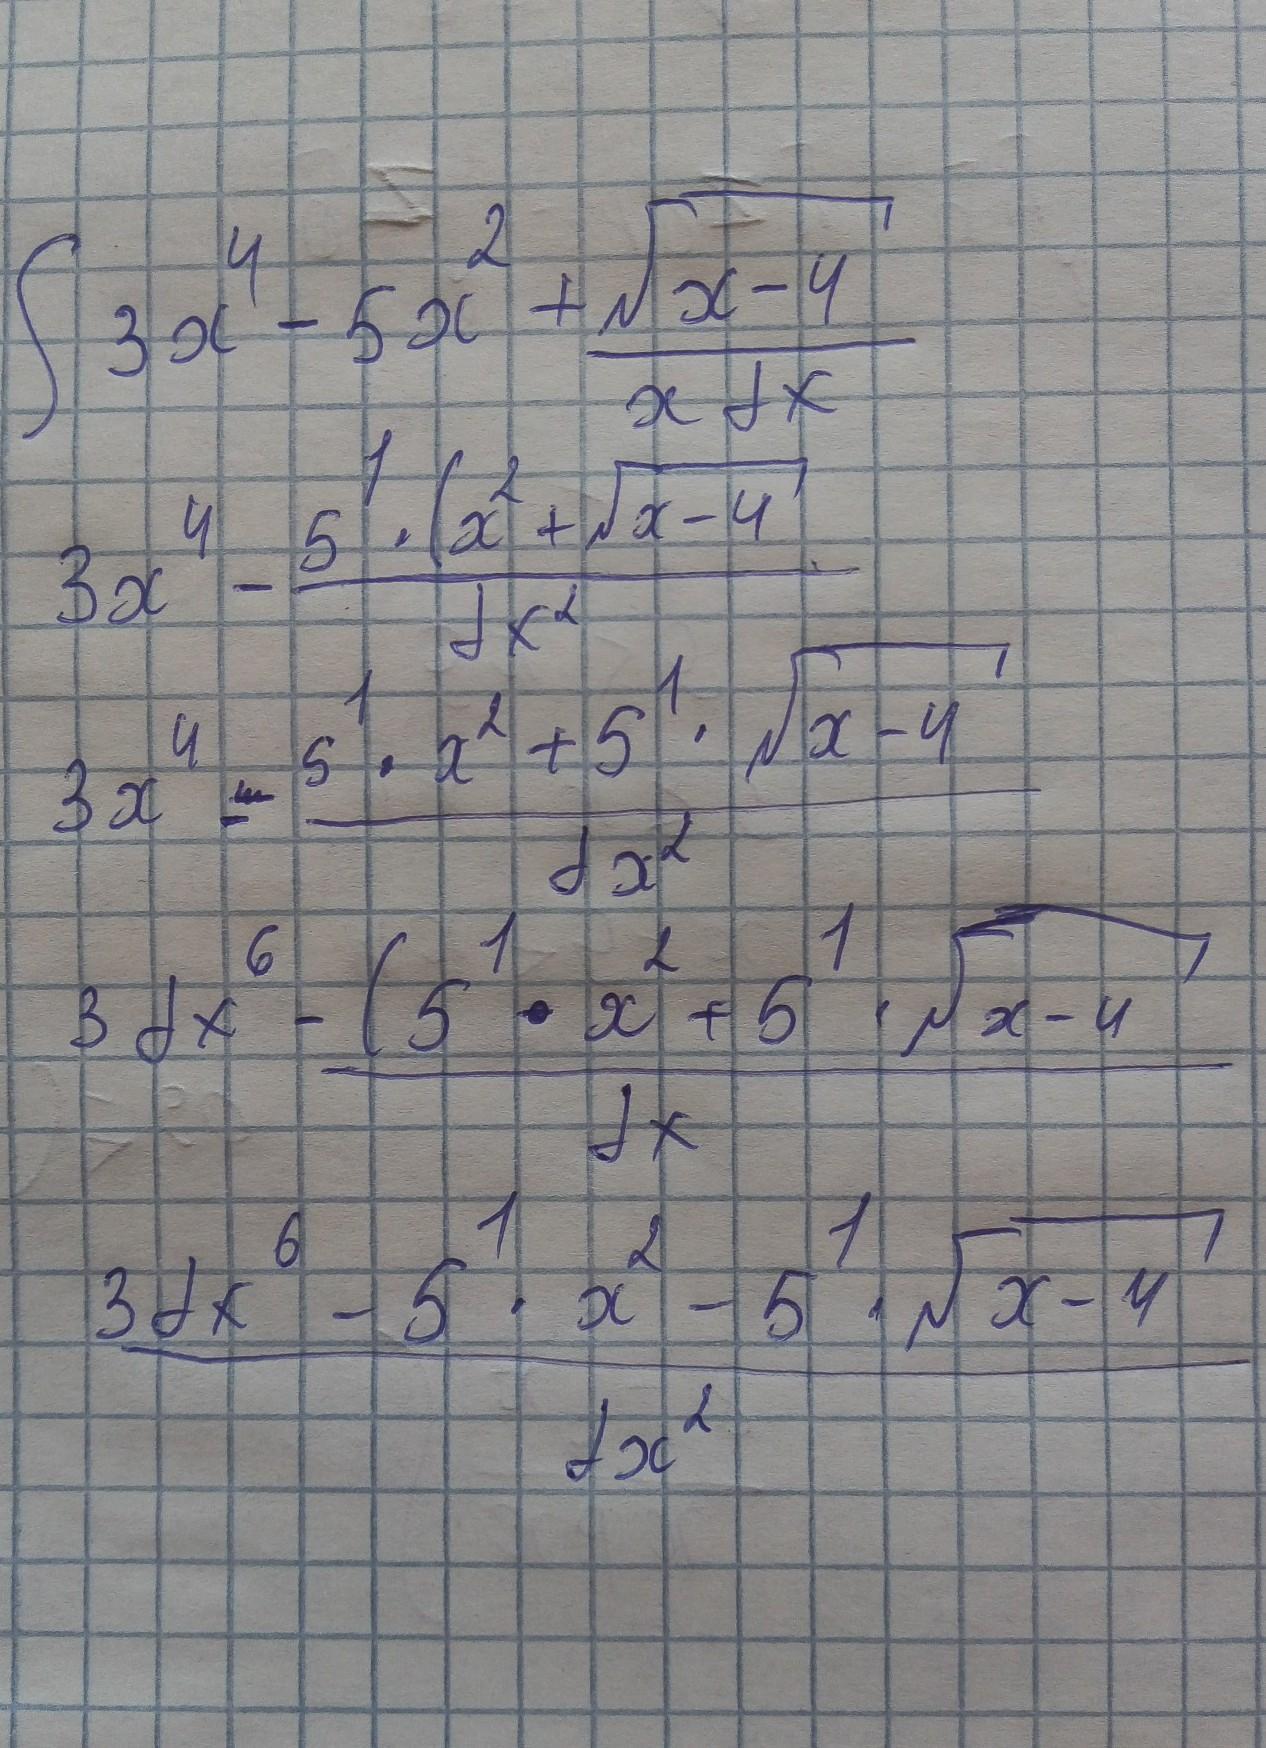 ∫ 3x⁴ - 5x² + √(x-4)
x dx
3x⁴ - 5¹ · (x² + √(x-4)
dx²
3x⁴ - 5¹ · x² + 5¹ · √(x-4)
dx²
3dx⁶ - (5¹ · x² + 5¹ · √(x-4)
dx
3dx⁶ - 5¹ · x² - 5¹ · √(x-4)
dx²